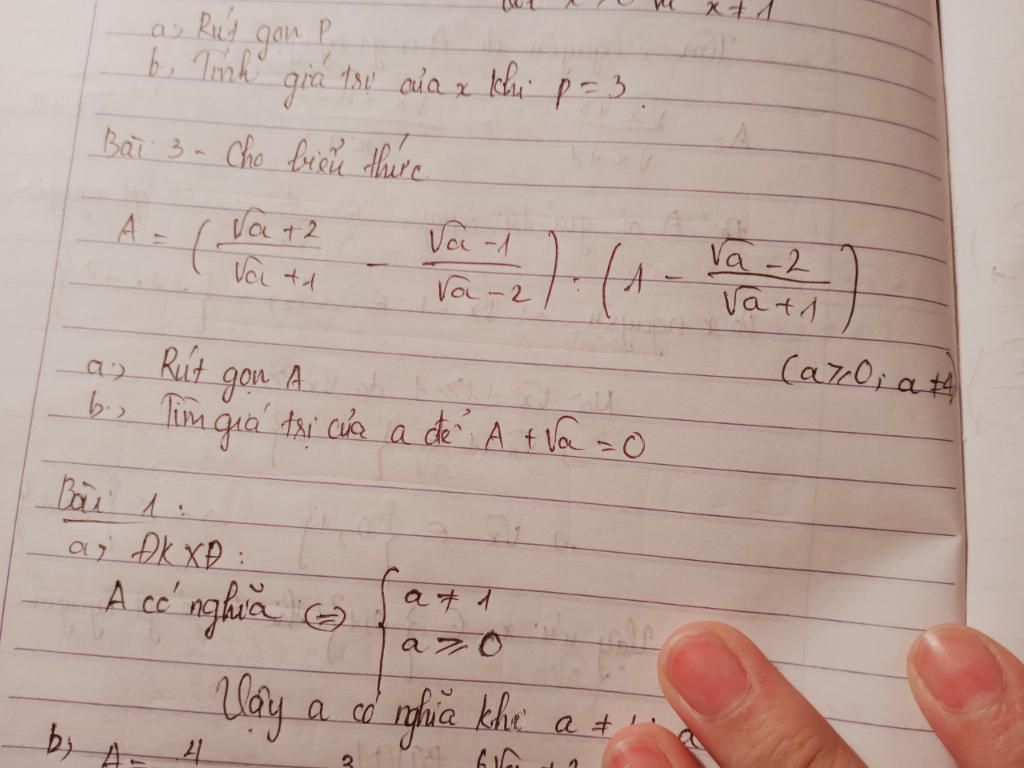 x ≠ 1
a, Rút gọn P
b, Tính giá trị của x khi p = 3.
Bài 3 - Cho biểu thức
A = ( (√a + 2)/(√a + 1) - (√a - 1)/(√a - 2) ) : ( 1 - (√a - 2)/(√a + 1) )
(a ≥ 0; a ≠ 4)
a, Rút gọn A
b, Tìm giá trị của a để A + √a = 0
Bài 1 :
a, ĐKXĐ:
A có nghĩa ⇔ { a ≠ 1
a ≥ 0
Vậy a có nghĩa khi a ≠
b, A = 4 3